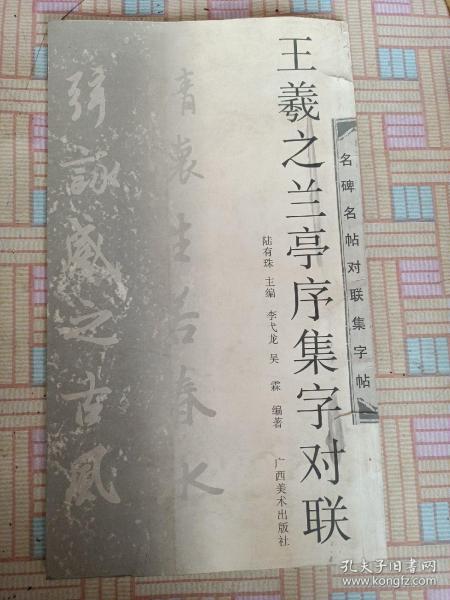 名碑名帖对联集字帖
王羲之兰亭序集字对联
陆有珠 主编 李弋龙 吴霖 编著
广西美术出版社
弦咏盛之古风
孔夫子旧书网
www.kongfz.com